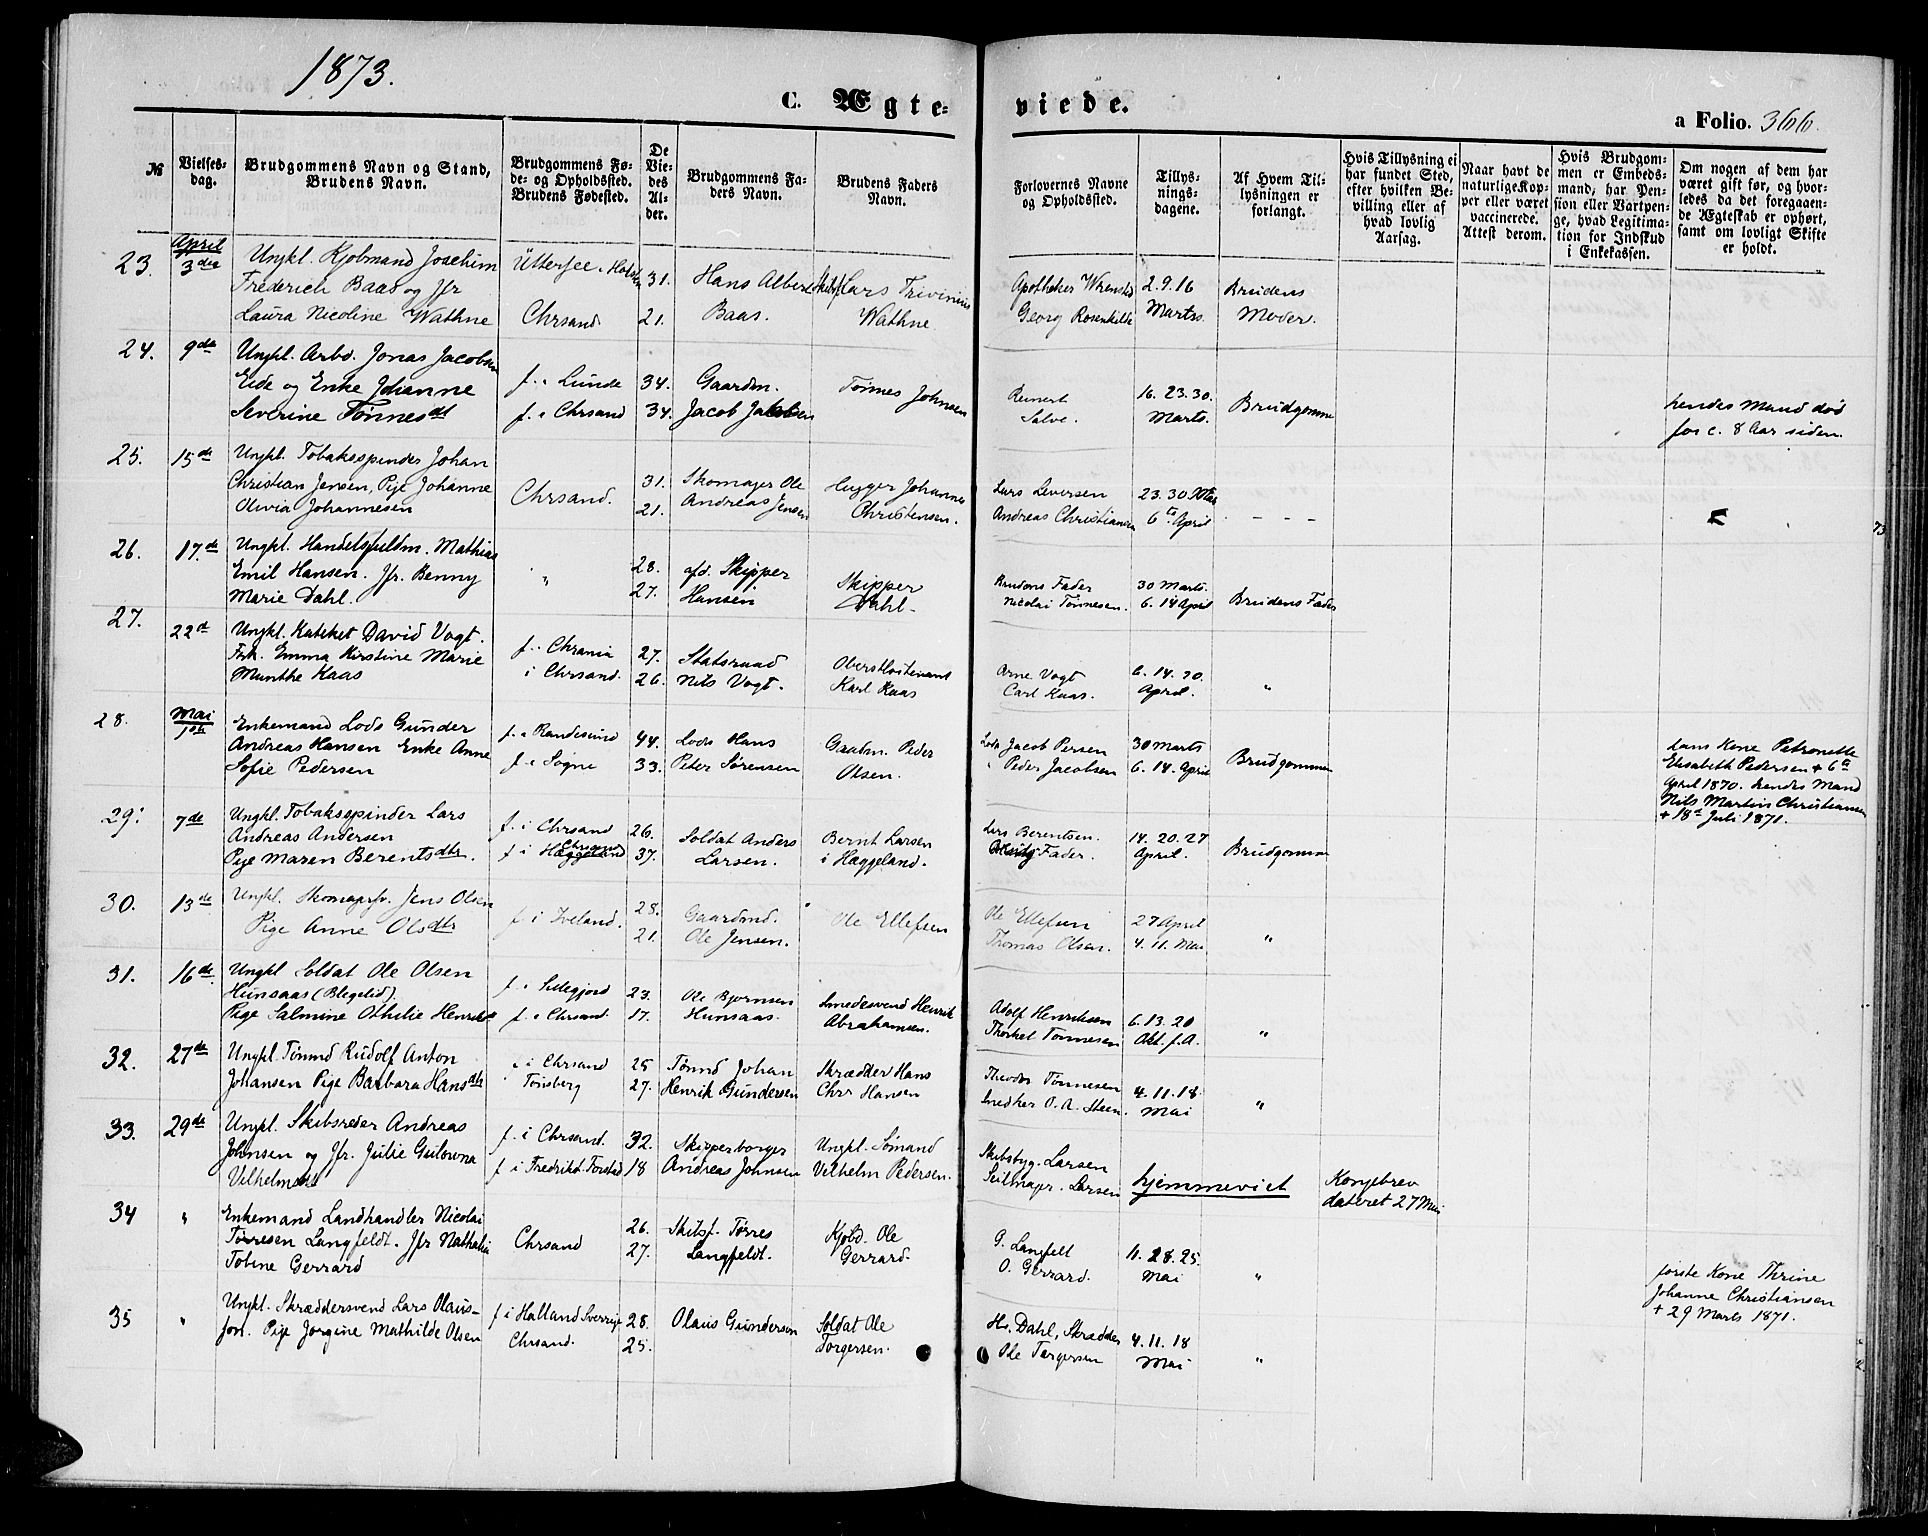 1873.
C. Ægte-
viede.
a Folio. 366.
№
Vielses-
dag.
Brudgommens Navn og Stand,
Brudens Navn.
Brudgommens Fø-
de- og Opholdssted.
Brudens Fødested.
De
Vie-
des
Al-
der.
Brudgommens Fa-
ders Navn.
Brudens Faders
Navn.
Forlovernes Navne
og Opholdssted.
Tillys-
nings-
dagene.
Af Hvem Til-
lysningen er
forlangt.
Hvis Tillysning ei
har fundet Sted,
efter hvilken Be-
villing eller af
hvad lovlig
Aarsag.
Naar havt de
naturlige Kop-
per eller været
vaccinerede.
Attest derom.
Hvis Brudgom-
men er Embeds-
mand, har Pen-
sion eller Vartpen-
ge, hvad Legitima-
tion for Indskud
i Enkekassen.
Om nogen af dem har
været gift før, og hvor-
ledes da det foregaaen-
de Ægteskab er ophørt,
samt om lovligt Skifte
er holdt.
23.
April
3die
Ungkl. Kjøbmand Joachim
Frederich Baas og Jfr
Laura Nicoline Wathne
Chrsand.
31.
21.
Hans Albert
Baas.
Lars Trivinius
Wathne
Apotheker
Georg Rosenkilde
2. 9. 16
Marts.
Brudens
Moder.
24.
9de
Ungkl. Arbd. Jonas Jacobsen
Eide og Enke Johanne
Severine Tønnesdt
f. i Lunde
f. i Chrsand
34.
34.
Gaardm.
Jacob Jakobsen
Tønnes Johnsen
Reinert
Salve.
16. 23. 30.
Marts.
Brudgomme
hendes Mand død
for c. 8 Aar siden.
25.
15de
Ungkl. Tobaksspinder Johan
Christian Jensen, Pige Johanne
Olivia Johannesen
Chrsand.
31.
21.
Skomager Ole
Andreas Jensen
Ligger Johannes
Christensen.
Lars Leversen
Andreas Christiansen
23. 30 Mar
6te April
- - -
26.
17.de
Ungkl. Handelsfuldm. Mathias
Emil Hansen. Jfr. Benny
Marie Dahl.
"
28.
27.
afd. Skipper
Hansen
Skipper
Dahl.
Brudens Fader
Nicolai Tønnesen.
30 Marts.
6. 14 April
Brudens Fader
27.
22de
Ungkl. Kateket David Vogt.
Frk. Emma Kirstine Marie
Munthe Kaas
f. i Chrania
i Chrsand
27.
26.
Statsraad
Nils Vogt.
Oberstløitenant
Karl Kaas
Arne Vogt
Carl Kaas.
6. 14. 20.
April.
"
28.
Mai
1ste
Enkemand Lods Gunder
Andreas Hansen Enke Anne
Sofie Pedersen
f. i Randesund
f. i Søgne
44.
33.
Lods Hans
Peter Sørensen
Gaardm. Peder
Olsen.
Lods Jacob Persen
" Peder Jacobsen
30 Marts
6. 14. April
Brudgommen
hans Kone Petronelle
Elisabeth Pedersen + 6te
April 1870. hendes Mand
Nils Martin Christiansen
+ 18de Juli 1871.
29.
7de
Ungkl. Tobaksspinder Lars
Andreas Andersen
Pige Maren Berentsdtr.
f. i Chrsand
f. i Hæggeland
26.
37.
Soldat Anders
Larsen.
Bernt Larsen
i Hæggeland.
Lars Berentsen.
Fader.
14. 20. 27
April.
Brudgomme
30.
13de
Ungkl. Skomagersv. Jens Olsen
Pige Anne Olsdtr
f. i Iveland.
28.
21.
Gaardmd.
Ole Jensen.
Ole Ellefsen
Ole Ellefsen
Thomas Olsen.
27 April
4. 11. Mai
"
31.
16de.
Ungkl Soldat Ole Olsen
Hunsaas (Blegelid)
Pige Salmine Othilie Henriksdt
f. i Sillegjord
f. i Chrsand.
23.
17.
Ole Bjørnsen
Hunsaas.
Smedesvend Henrik
Abrahamsen.
Adolf Henriksen
Thorkel Tønnesen
6. 13. 20
Okt. f. A.
"
32.
27de
Ungkl. Tønmd Rudolf Anton
Johansen Pige Barbara Hansdtr
i Chrsand
" Tønsberg
25
27.
Tønmd Johan
Henrik Gundersen
Skrædder Hans
Chr Hansen
Theodor Tønnesen
Snedker O. A. Steen.
4. 11. 18.
Mai
"
33.
29de
Ungkl. Skibsreder Andreas
Johnsen og Jfr. Julie Gulowna
Vilhelmsen
f. i Chrsand.
f. i Fredrikst. Torsted
32.
18
Skipperborger
Andreas Johnsen
Ungkl. Sømand
Vilhelm Pedersen.
Skibsbyg. Larsen
Seilmager. Larsen
hjemmeviet
Kongebrev
dateret 27 Mai
34
"
Enkemand Landhandler Nicolai
Tørresen Langfeldt. Jfr Nathalia
Tobine Gerrard
Chrsand
26.
27.
Skibsf. Tørres
Langfeldt.
Kjøbd. Ole
Gerrard.
G. Langfelt
O. Gerrard.
11. 18. 25.
Mai
"
første Kone Thrine
Johanne Christiansen
+ 29 Marts 1871.
35
"
Ungkl. Skræddersvend Lars Olaus-
son. Pige Jørgine Mathilde Olsen
f i Halland Sverrige
Chrsand.
28.
25.
Olaus Gundersen
Soldat Ole
Torgersen.
Hs. Dahl, Skrædder
Ole Torgersen
4. 11. 18
Mai
"